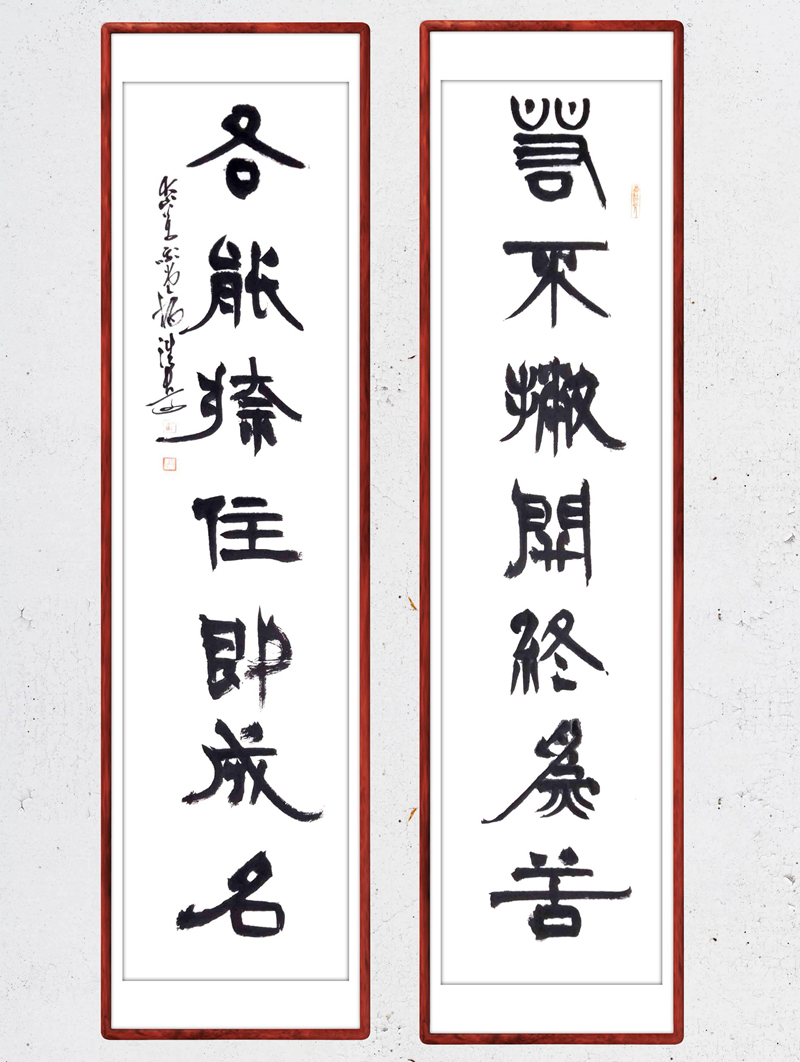 苟不撇開終爲苦
各能捺住即成名